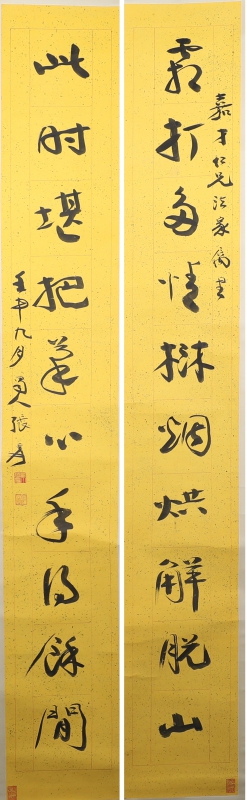 霜打多情林烟烘解脱山
嘉才仁兄法家属書
此时堪把筆心手得餘閒
壬申九月蜀人張爰